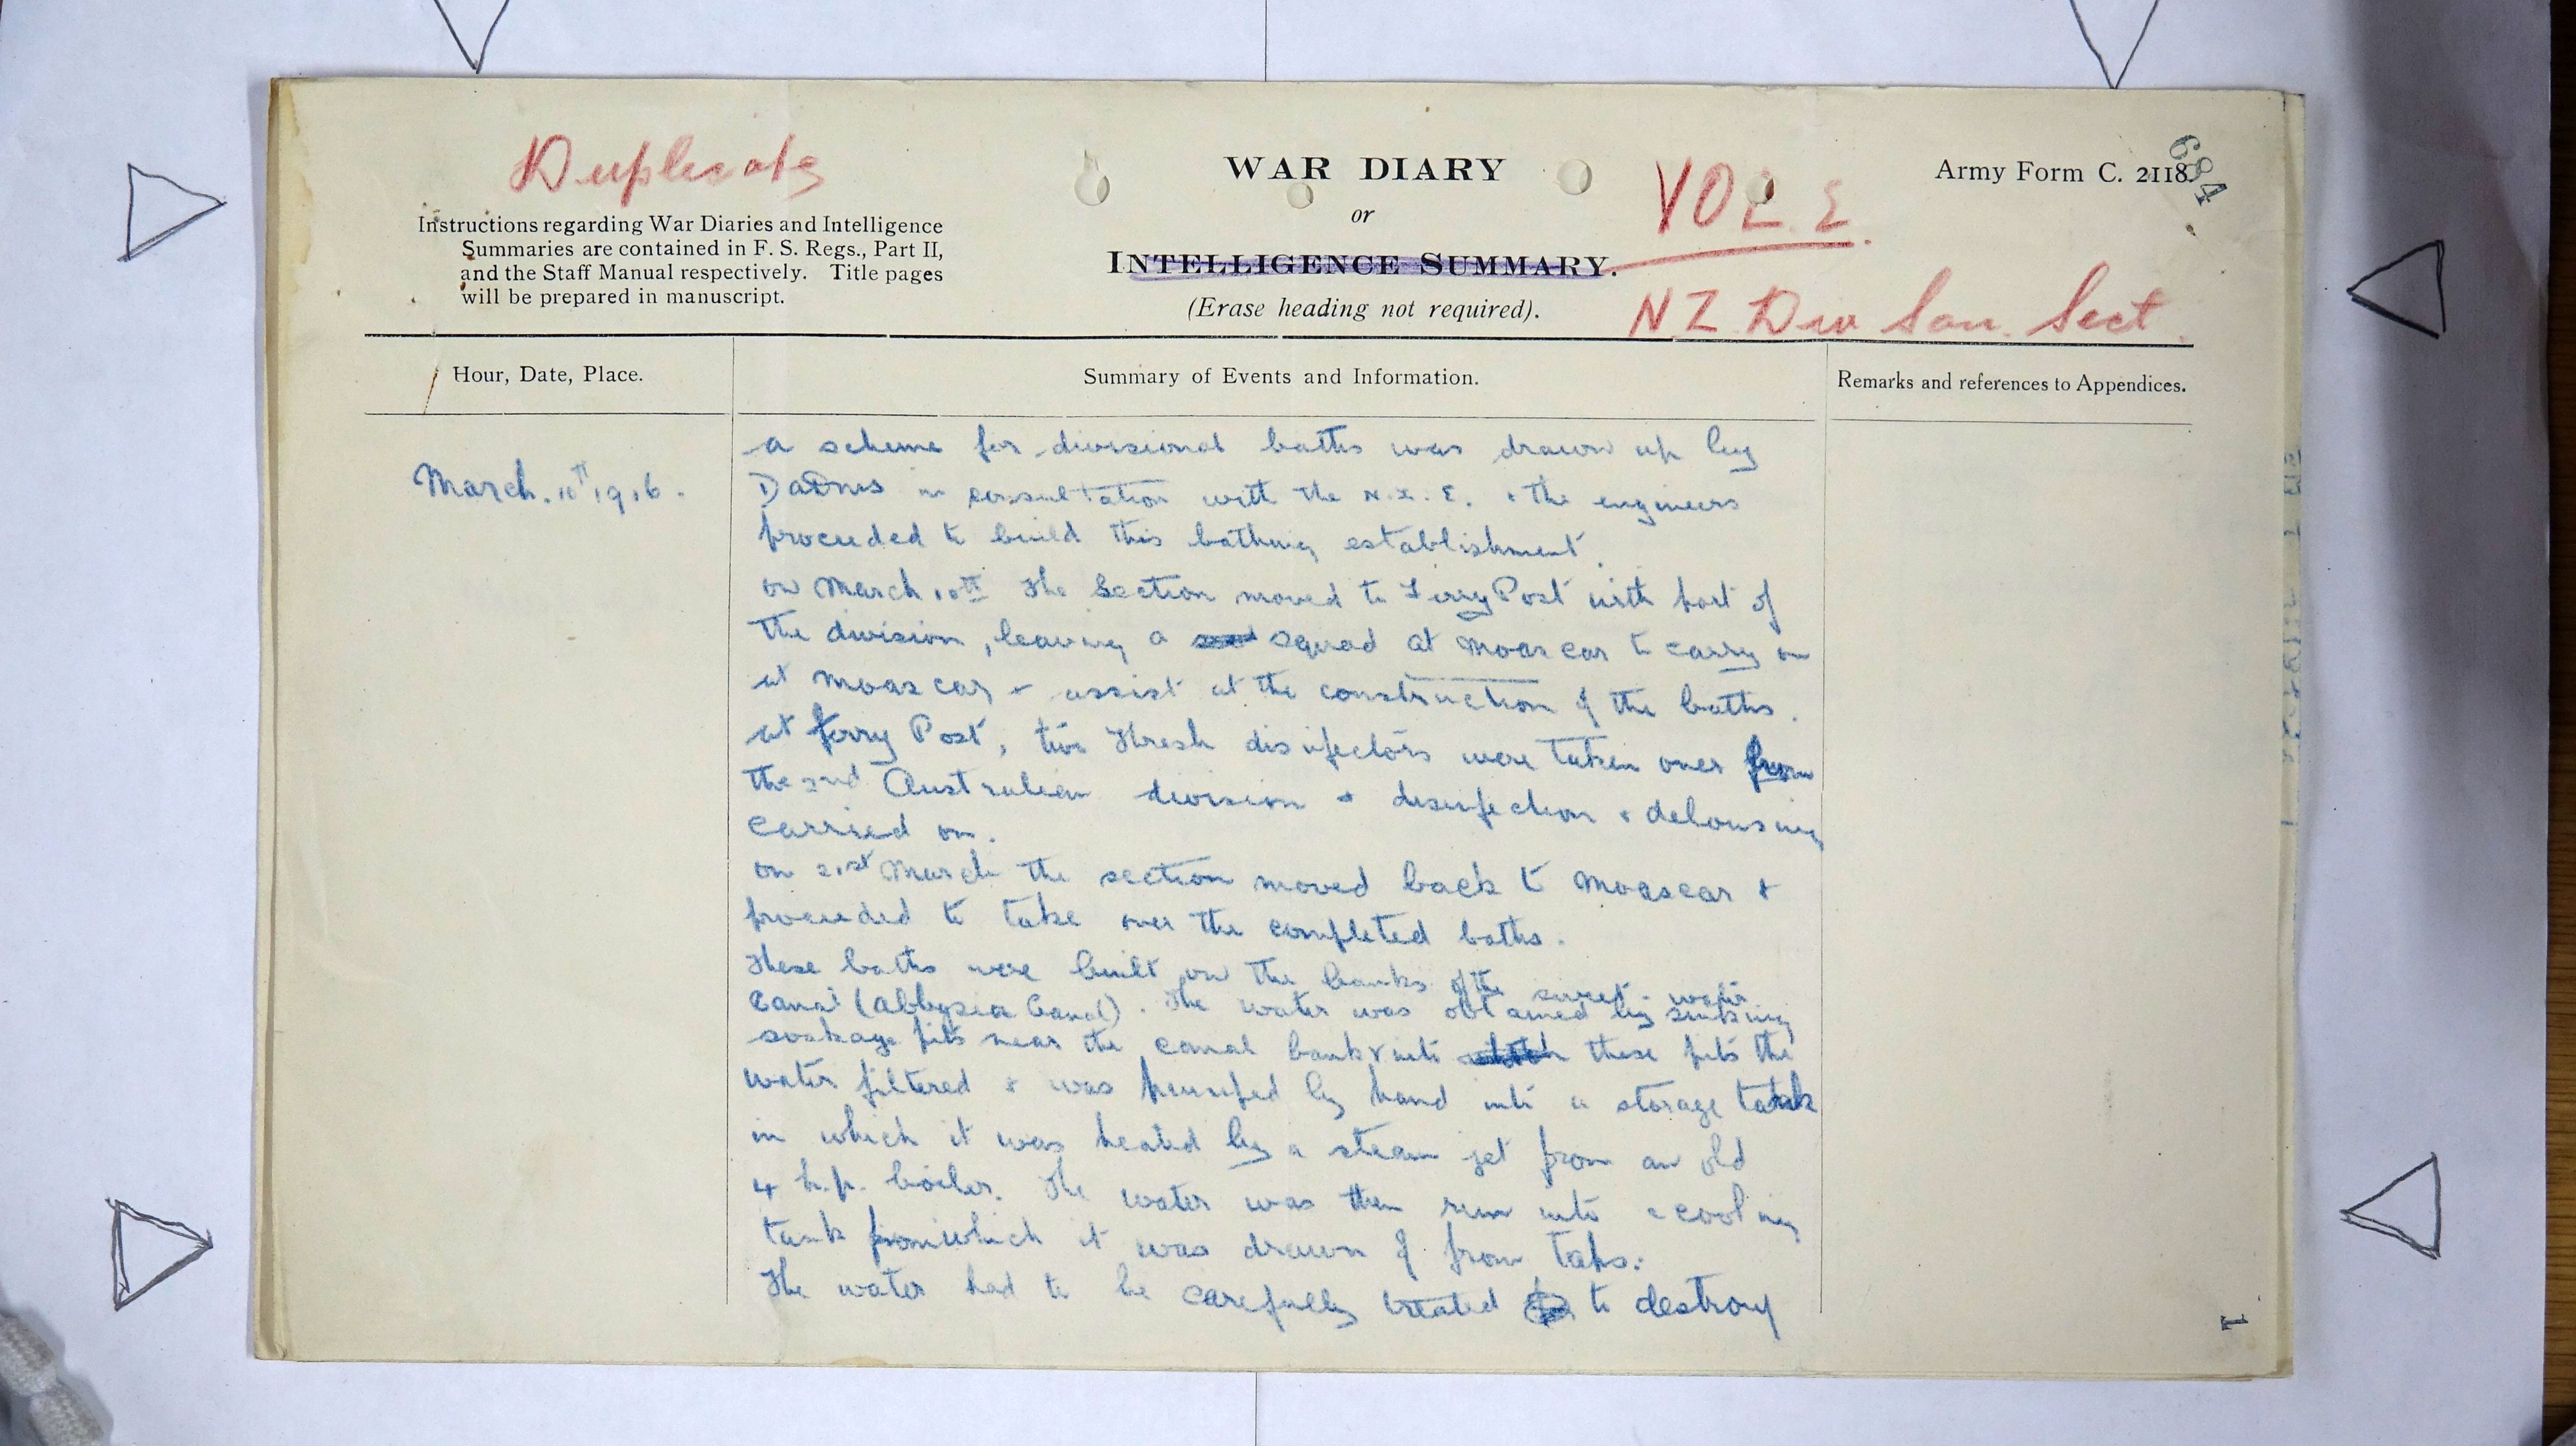 Duplicate
Instructions regarding War Diaries and Intelligence
Summaries are contained in F. S. Regs., Part II,
and the Staff Manual respectively. Title pages
will be prepared in manuscript.
WAR DIARY
or
INTELLIGENCE SUMMARY.
(Erase heading not required).
VOL 2.
NZ Div San. Sect.
Army Form C. 2118.
684
Hour, Date, Place.
Summary of Events and Information.
Remarks and references to Appendices.
March. 10th 1916.
a scheme for divisional baths was drawn up by
DADMS in consultation with the N.Z.E. & the engineers
proceeded to build this bathing establishment.
on March 10th The Section moved to Ferry Post with part of
the division, leaving a squad at Moascar to carry on
at Moascar & assist at the construction of the baths.
at Ferry Post, two Thresh disinfectors were taken over from
the 2nd Australian division & disinfection & delousing
carried on.
on 21st March the section moved back to Moascar &
proceeded to take over the completed baths.
These baths were built on the banks of the sweet-water
Canal (Abbysia Canal). The water was obtained by sinking
soakage pits near the canal bank & into these pits the
water filtered & was pumped by hand into a storage tank
in which it was heated by a steam jet from an old
4 h.p. boiler. The water was then run into a cooling
tank from which it was drawn off from taps.
The water had to be carefully treated to destroy
1